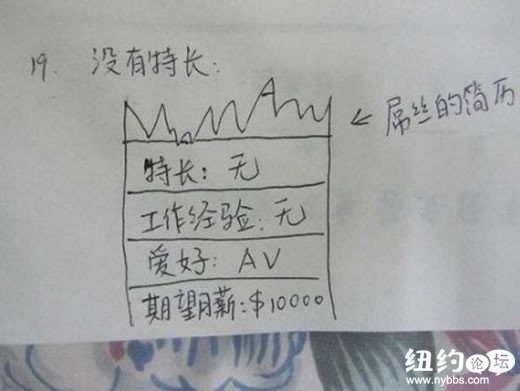 19. 没有特长:
← 屌丝的简历
特长: 无
工作经验: 无
爱好: AV
期望月薪: $10000
纽约论坛
www.nybbs.com